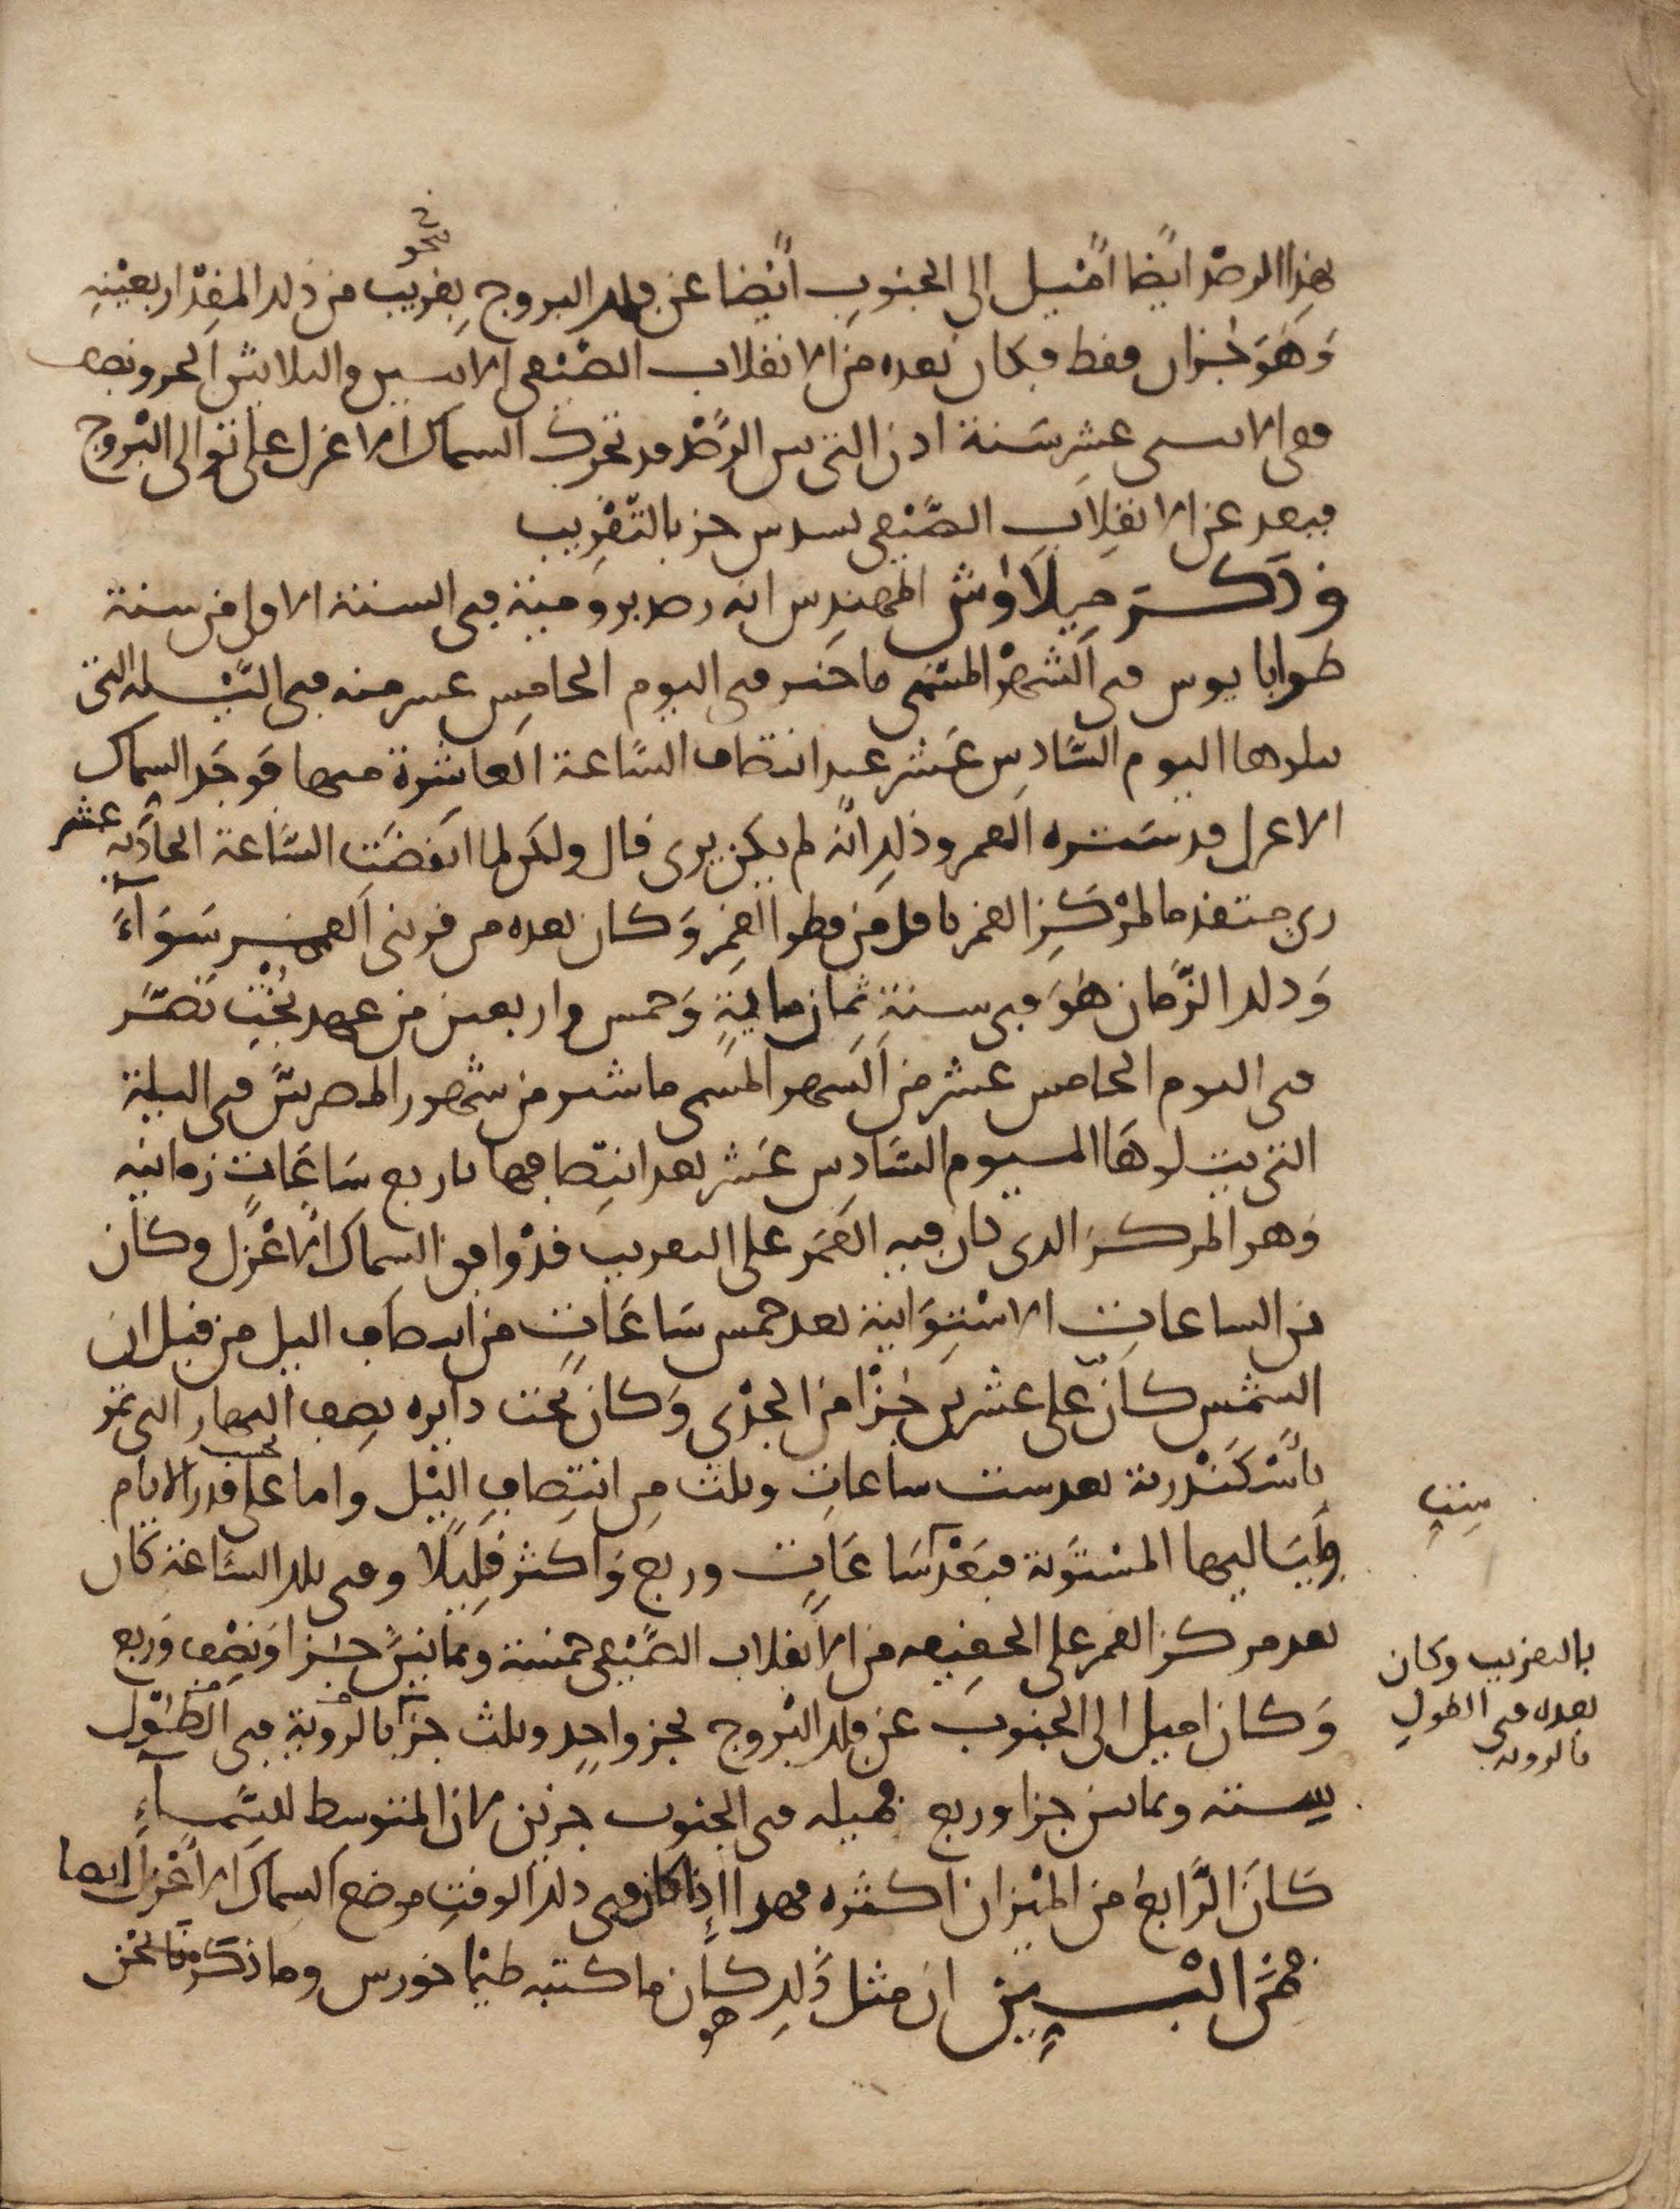 نحو
بهذا الرصد ايضا اميل الى الجنوب ايضا عن فلك البروج بقريب من ذلك المقدار بعينه
وهو جزان فقط فكان بعده من الانقلاب الصيفي الاثنين والثمانين الجزء ونصف
ففي الاثنى عشر سنة اذن التي بين الرصد قد تحرك السماك الاعزل على توالي البروج
فبعد عن الانقلاب الصيفي بسدس جز بالتقريب
وذكر ميلاوش المهندس انه رصد برومية في السنة الاولى من سنة
طرايايوس في الشهر المسمى ماخير في اليوم الخامس عشر منه في الليلة التي
يتلوها اليوم السادس عشر عند انتصاف الساعة العاشرة منها فوجد السماك
الاعزل قد ستره القمر وذلك انه لم يكن يرى قال ولكن لما انقضت الساعة الحادية عشر
ري متقدما لمركز القمر باقل من قطر القمر وكان بعده من قرني القمر سواء
وذلك الزمان هو في سنة ثمان ماية وخمس واربعين من عهد بخت نصر
في اليوم الخامس عشر من الشهر المسمى ماشير من شهور المصريين في اليلة
التي يتلوها اليوم السادس عشر بعد انتصافها باربع ساعات زمانية
وهو المركز الذي كان فيه القمر على التقريب قد وافق السماك الاعزل وكان
من الساعات الاستوائية بعد خمس ساعات من انتصاف اليل من قبل ان
الشمس كان على عشرين جزا من الجدي وكان تحت دايره نصف النهار التي تمر
باسكندرية بعد ست ساعات وثلث من انتصاف اليل واما على قدر الايام
بحسب
ولياليها المستوية فبعد ساعات وربع واكثر قليلا وفي تلك الساعة كان
ست
بعد مركز القمر على الحقيقه من الانقلاب الصيفي خمسة وثمانين جزا ونصف وربع
وكان اميل الى الجنوب عن فلك البروج بجز واحد وثلث جز بالروية في الطول
بالتقريب وكان
بعده في الطول
بالرويه
بستة وثمانين جزا وربع فميله في الجنوب جزين لان المتوسط للسماء
كان الرابع من الميزان اكثره فهذا اذا كان في ذلك الوقت موضع السماك الاعزل ايضا
فمن البين ان مثل ذلك كان ما كتبه طيماخورس وما ذكرناه نحن
هو